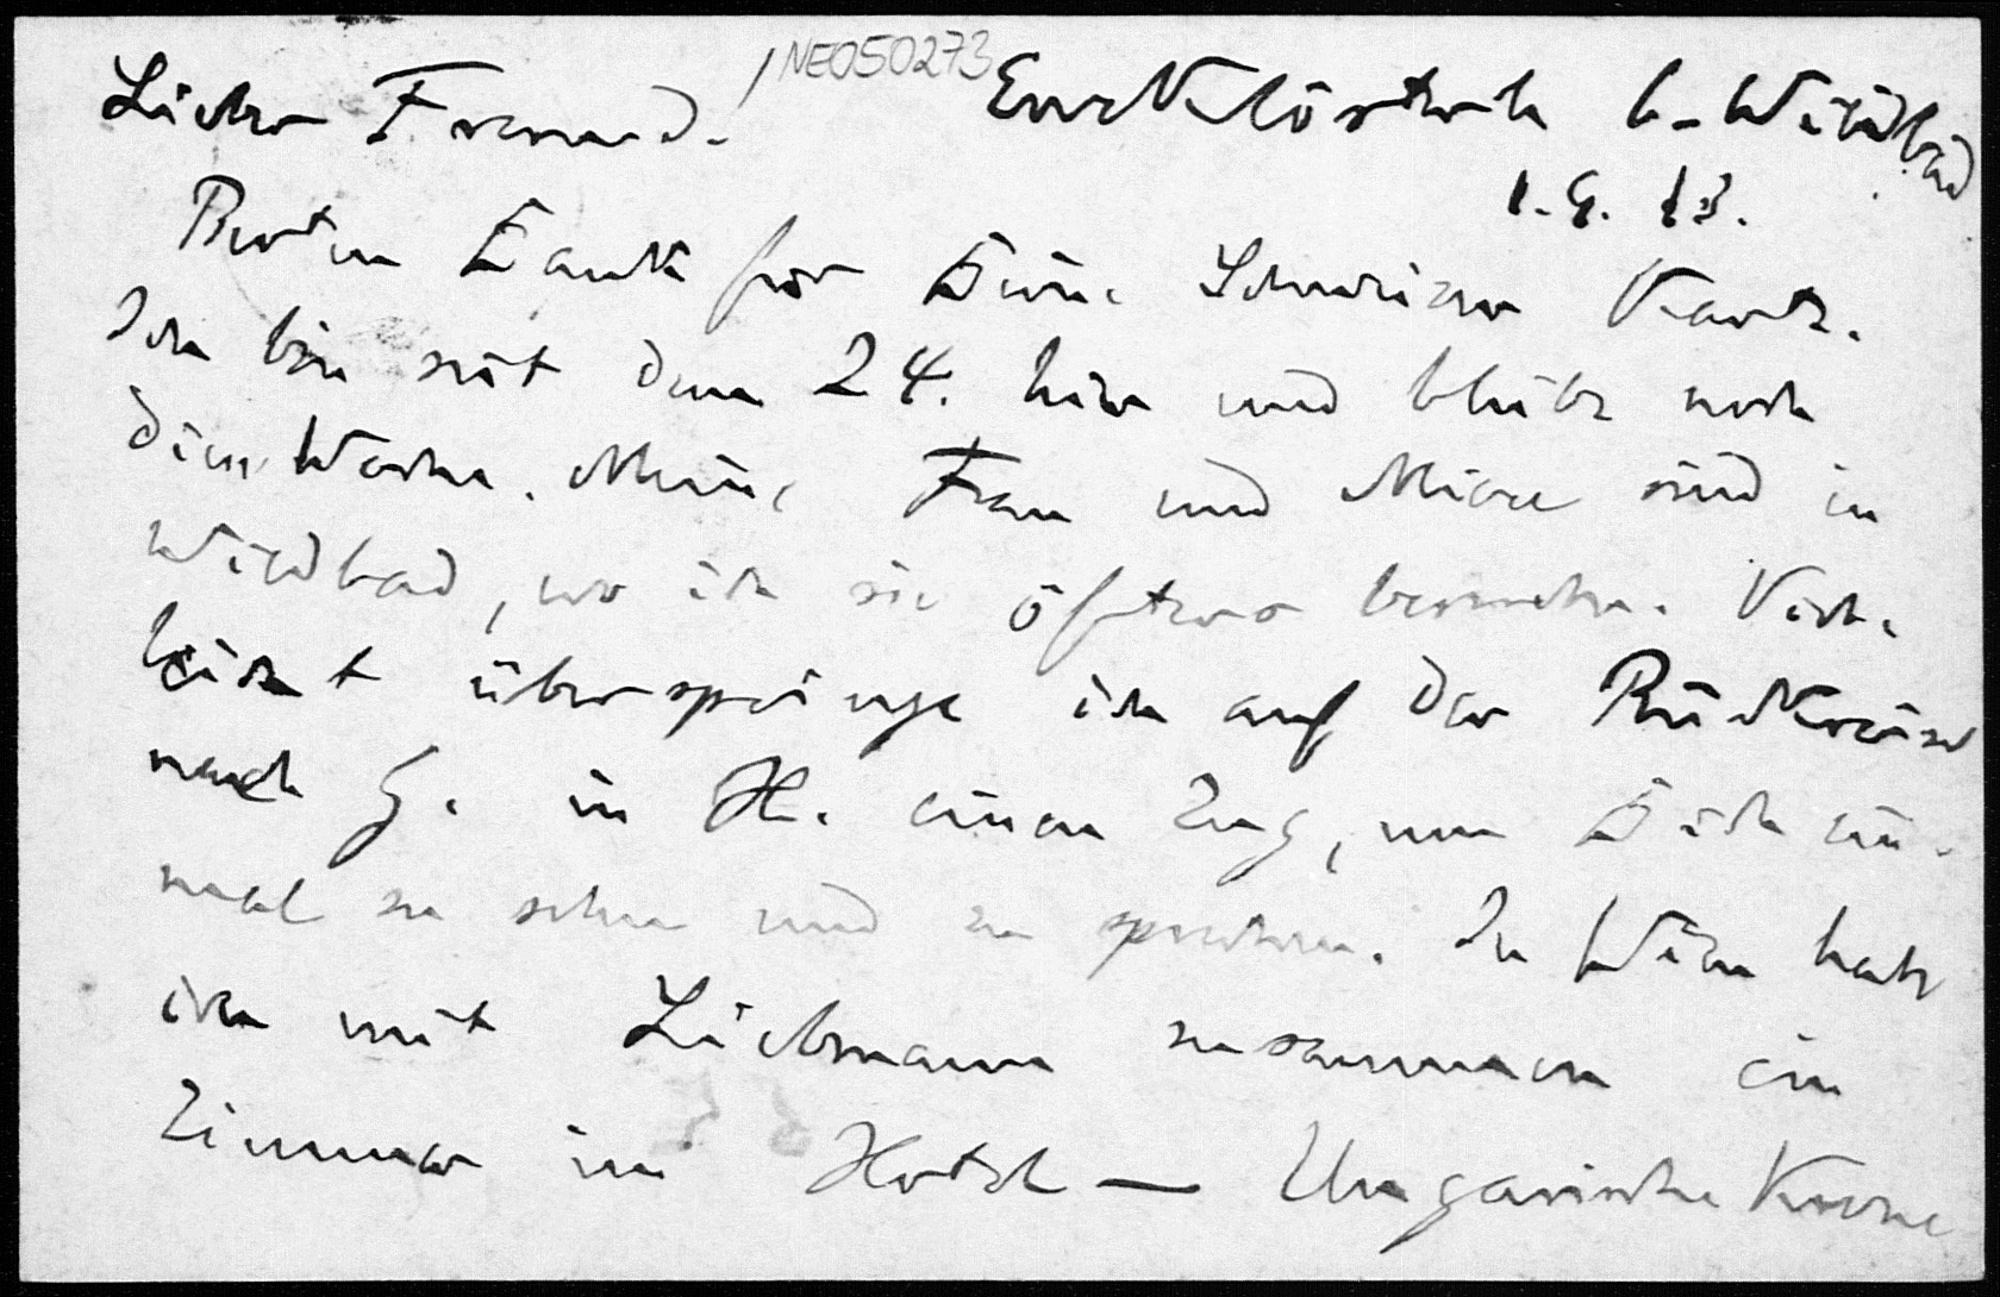 NE050273
Lieber Freund! Enzklösterle b. Wildbad
1. 9. 13.
Besten Dank für Deine Schweizer Karte.
Ich bin seit dem 24. hier und bleibe noch
diese Woche. Meine Frau und Miere sind in
Wildbad, wo ich sie öfters besuche. Viel-
leicht überspringe ich auf der Rückreise
nach G. in H. einen Zug, um Dich ein-
mal zu sehen und zu sprechen. In Wien hatte
ich mit Liebmann zusammen ein
Zimmer im Hotel — Ungarische Krone